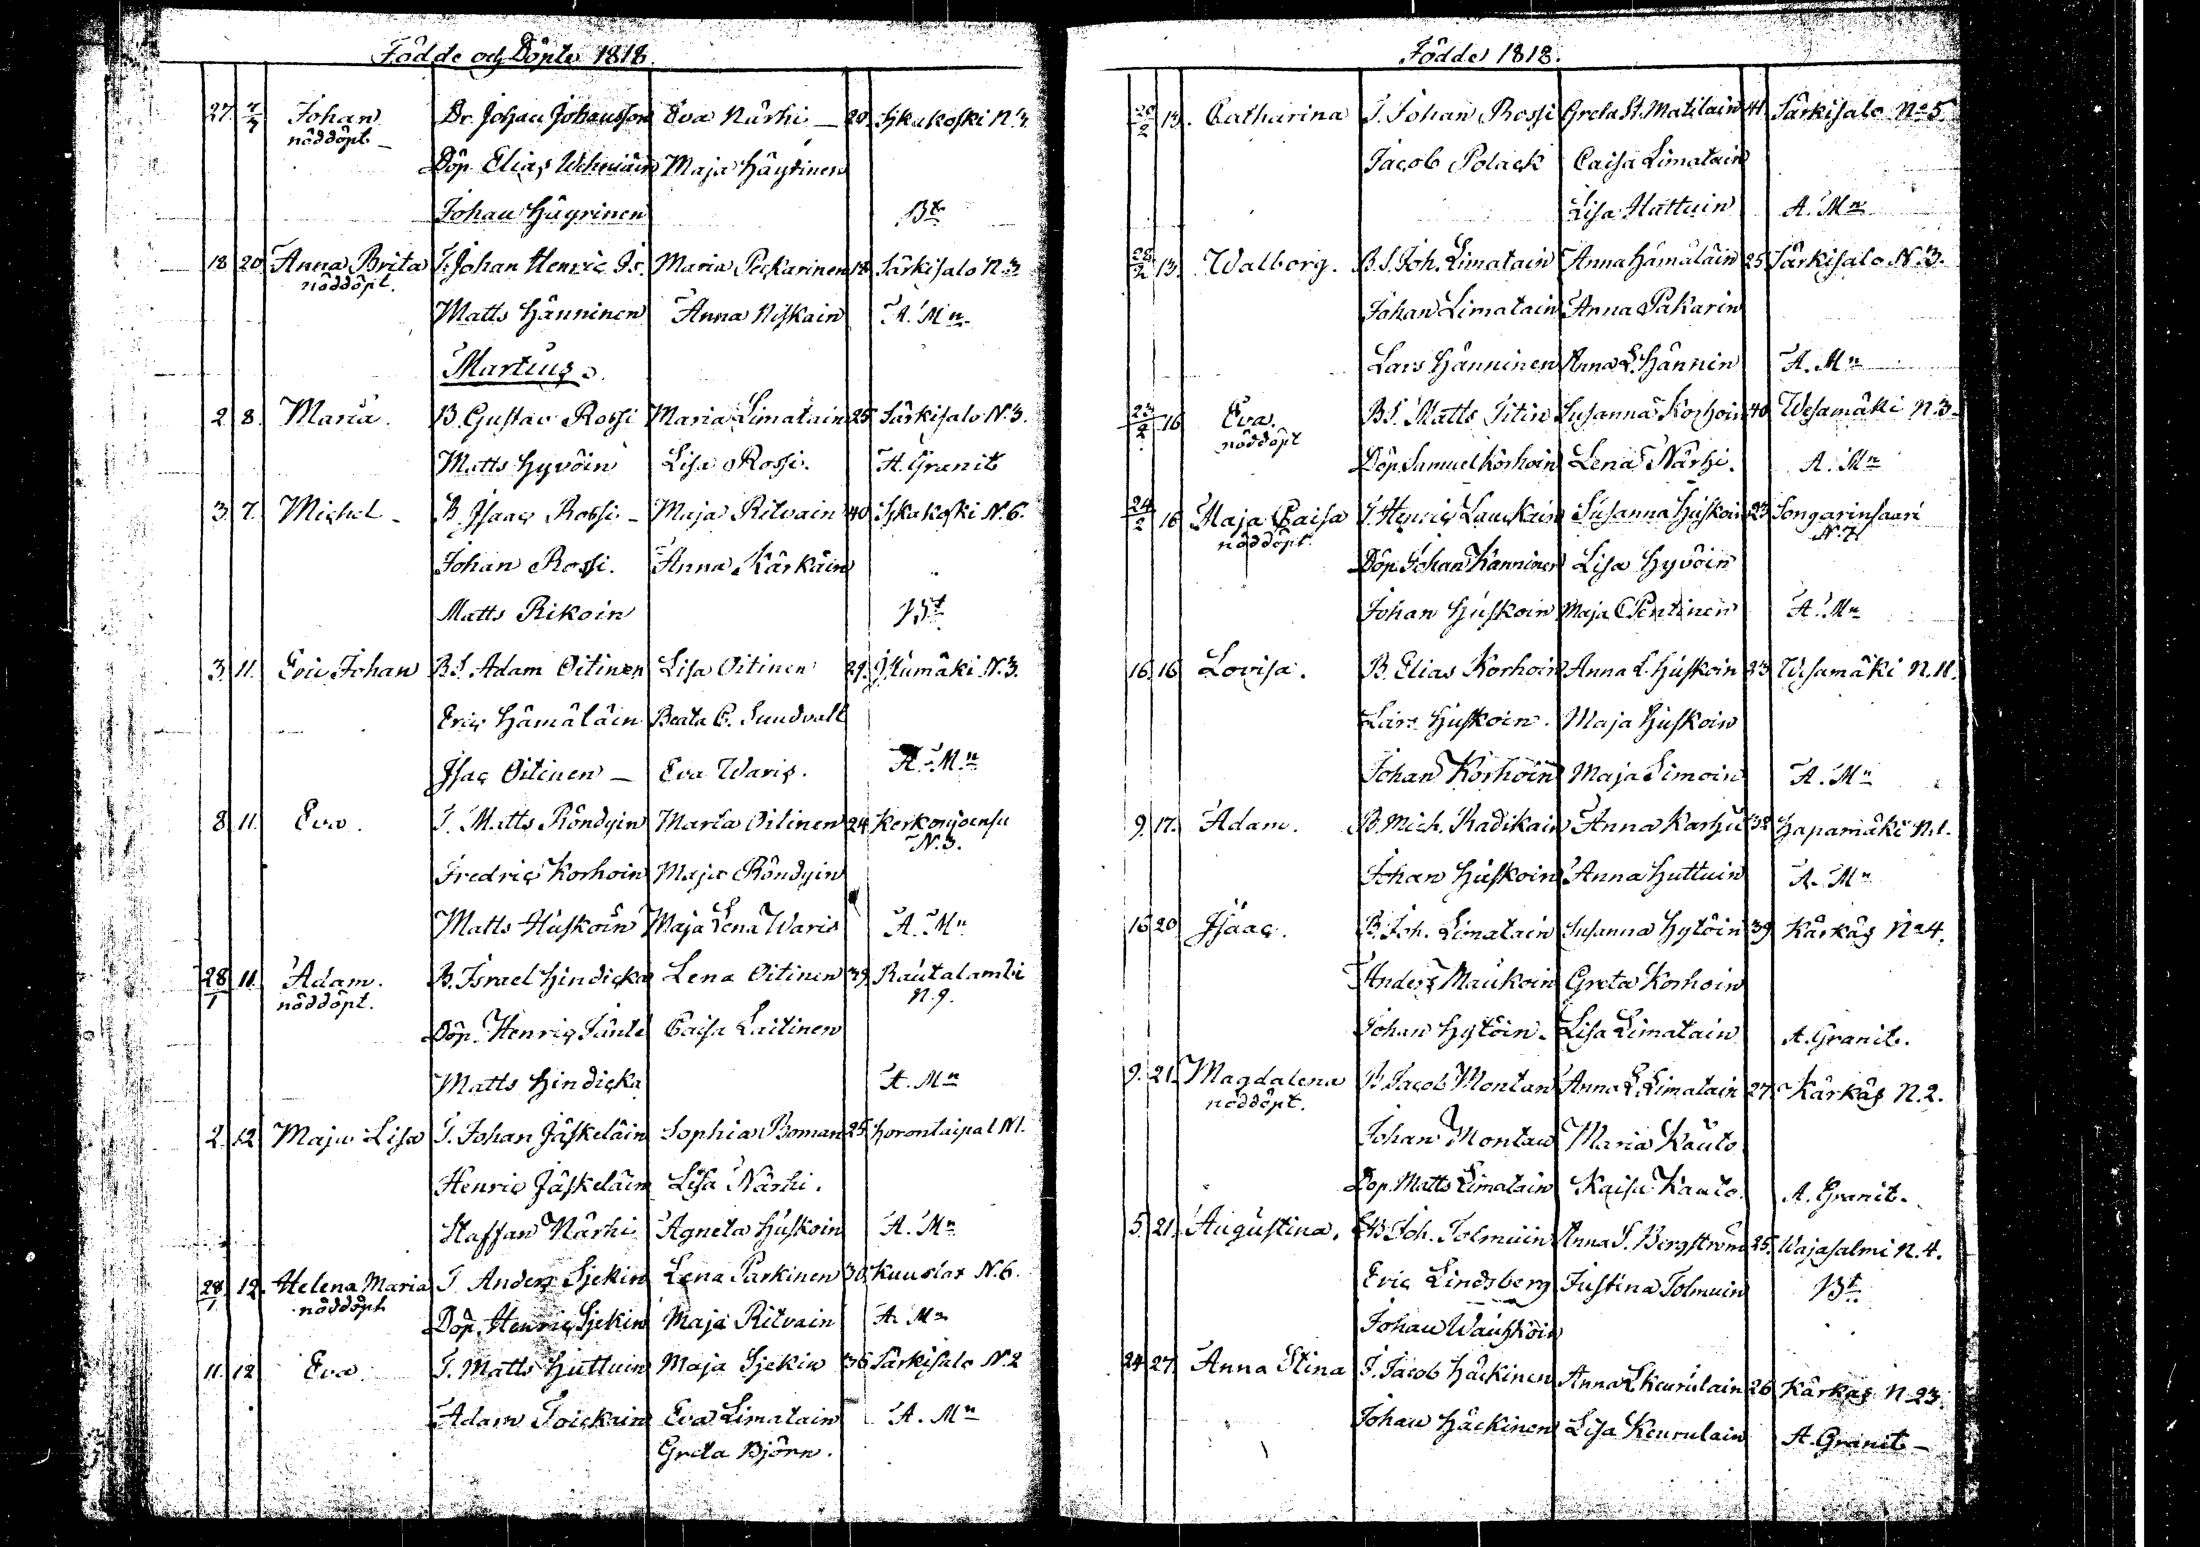 Födde och Döpte 1818.
27 Johan Dr. Johan Johansson Eva Närhi 20
nöddöpt
Döp. Elias Maja Häyrinen
Johan Häyrinen Bt
18 20 Anna Brita T. Johan Henric Is. Maria Peckarinen 18 Särkisalo N.3
nöddöpt.
Matts Hänninen Anna Niskain A. Mn
Martius.
2 8. Maria. B. Gustav Rossi Maria Limatain 25 Särkisalo N.3.
Matts Hyvöin Lisa Rossi. A. Granit
3 7. Michel B. Isaac Rossi Maja Ritvain 40 N.6.
Johan Rossi. Anna Kärkäin
Matts Rikoin Bt
3 11. Eric Johan B.S. Adam Oitinen Lisa Oitinen 29. N.3.
Eric Hämäläin Beata C. Sundvall
Isac Oitinen Eva Waris. A. Mn
8 11. Eva. T. Matts Röndyin Maria Oitinen 24 Kerkonjoensu
N.3.
Fredric Korhoin Maja Röndyin
Matts Huskoin Maja Lena Waris A. Mn
28/1 11. Adam. B. Israel Hindicka Lena Oitinen 39. Rautalambi
nöddöpt. N.9.
Döp. Henric Jänte Caisa Laitinen
Matts Hindicka A. Mn
2. 12 Maja Lisa T. Johan Jäskeläin Sophia Boman 25 Horontaipal N1.
Henric Jäskeläin Lisa Närhi.
Staffan Närhi Agneta Huskoin A. Mn
28/1 12. Helena Maria T. Anders Sjekin Lena Parkinen 30 Kuuslax N.6.
nöddöpt
Döp. Henric Sjekin Maja Ritvain A. Mn
11. 12 Eva T. Matts Huttuin Maja Sjekin 36 Särkisalo N.2
Adam Toickain Eva Limatain A. Mn
Greta Björn.
Födde 1818.
13. Catharina T. Johan Rossi Greta St. Matilain 41. Särkisalo No 5
Jacob Polack Caisa Limatain
Lisa Huttuin A. Mn
28/2 13. Walborg. B.S. Joh. Limatain Anna Hämäläin 25 Särkisalo N.3.
Johan Limatain Anna Pakarin
Lars Hänninen Anna L. Hännin A. Mn
23/2 16 Eva. B.S. Matts Titin Susanna Korhoin 40 Wesamäki N.3
nöddöpt
Döp. Samuel Korhoin Lena Närhi. A. Mn
24/2 16 Maja Caisa T. Henric Lauckain Susanna Huskoin 23 Songarinsaari
nöddöpt. N.7.
Döp. Johan Hänninen Lisa Hyvöin
Johan Huskoin Maja C Pentinen A. Mn
16. 16 Lovisa. B. Elias Korhoin Anna L. Huskoin 23 Wesamäki N.11.
Lars Huskoin. Maja Huskoin
Johan Korhoin Maja Simoin A. Mn
9. 17. Adam. B. Mich. Radikain Anna Karhu 38 Hapamäki N.1.
Johan Huskoin Anna Huttuin A. Mn
16 20 Isaac. B. Joh. Limatain Susanna Hytöin 39 Kärkäs No 4.
Anders Maukoin Greta Korhoin
Johan Hytöin. Lisa Limatain A. Granit.
9. 21. Magdalena B. Jacob Montan Anna L. Limatain 27. Kärkäs N.2.
nöddöpt.
Johan Montan Maria Kauto
Döp. Matts Limatain Kaisa Kauto. A. Granit.
5. 21. Augustina. B. Joh. Tolmuin Anna S. Bergström 25. Wajasalmi N.4.
Eric Lindsberg Justina Tolmuin Bt
Johan
24 27. Anna Stina T. Jacob Häckinen Anna L Keurulain 26 Kärkäs N 23.
Johan Häckinen Lisa Keurulain A. Granit